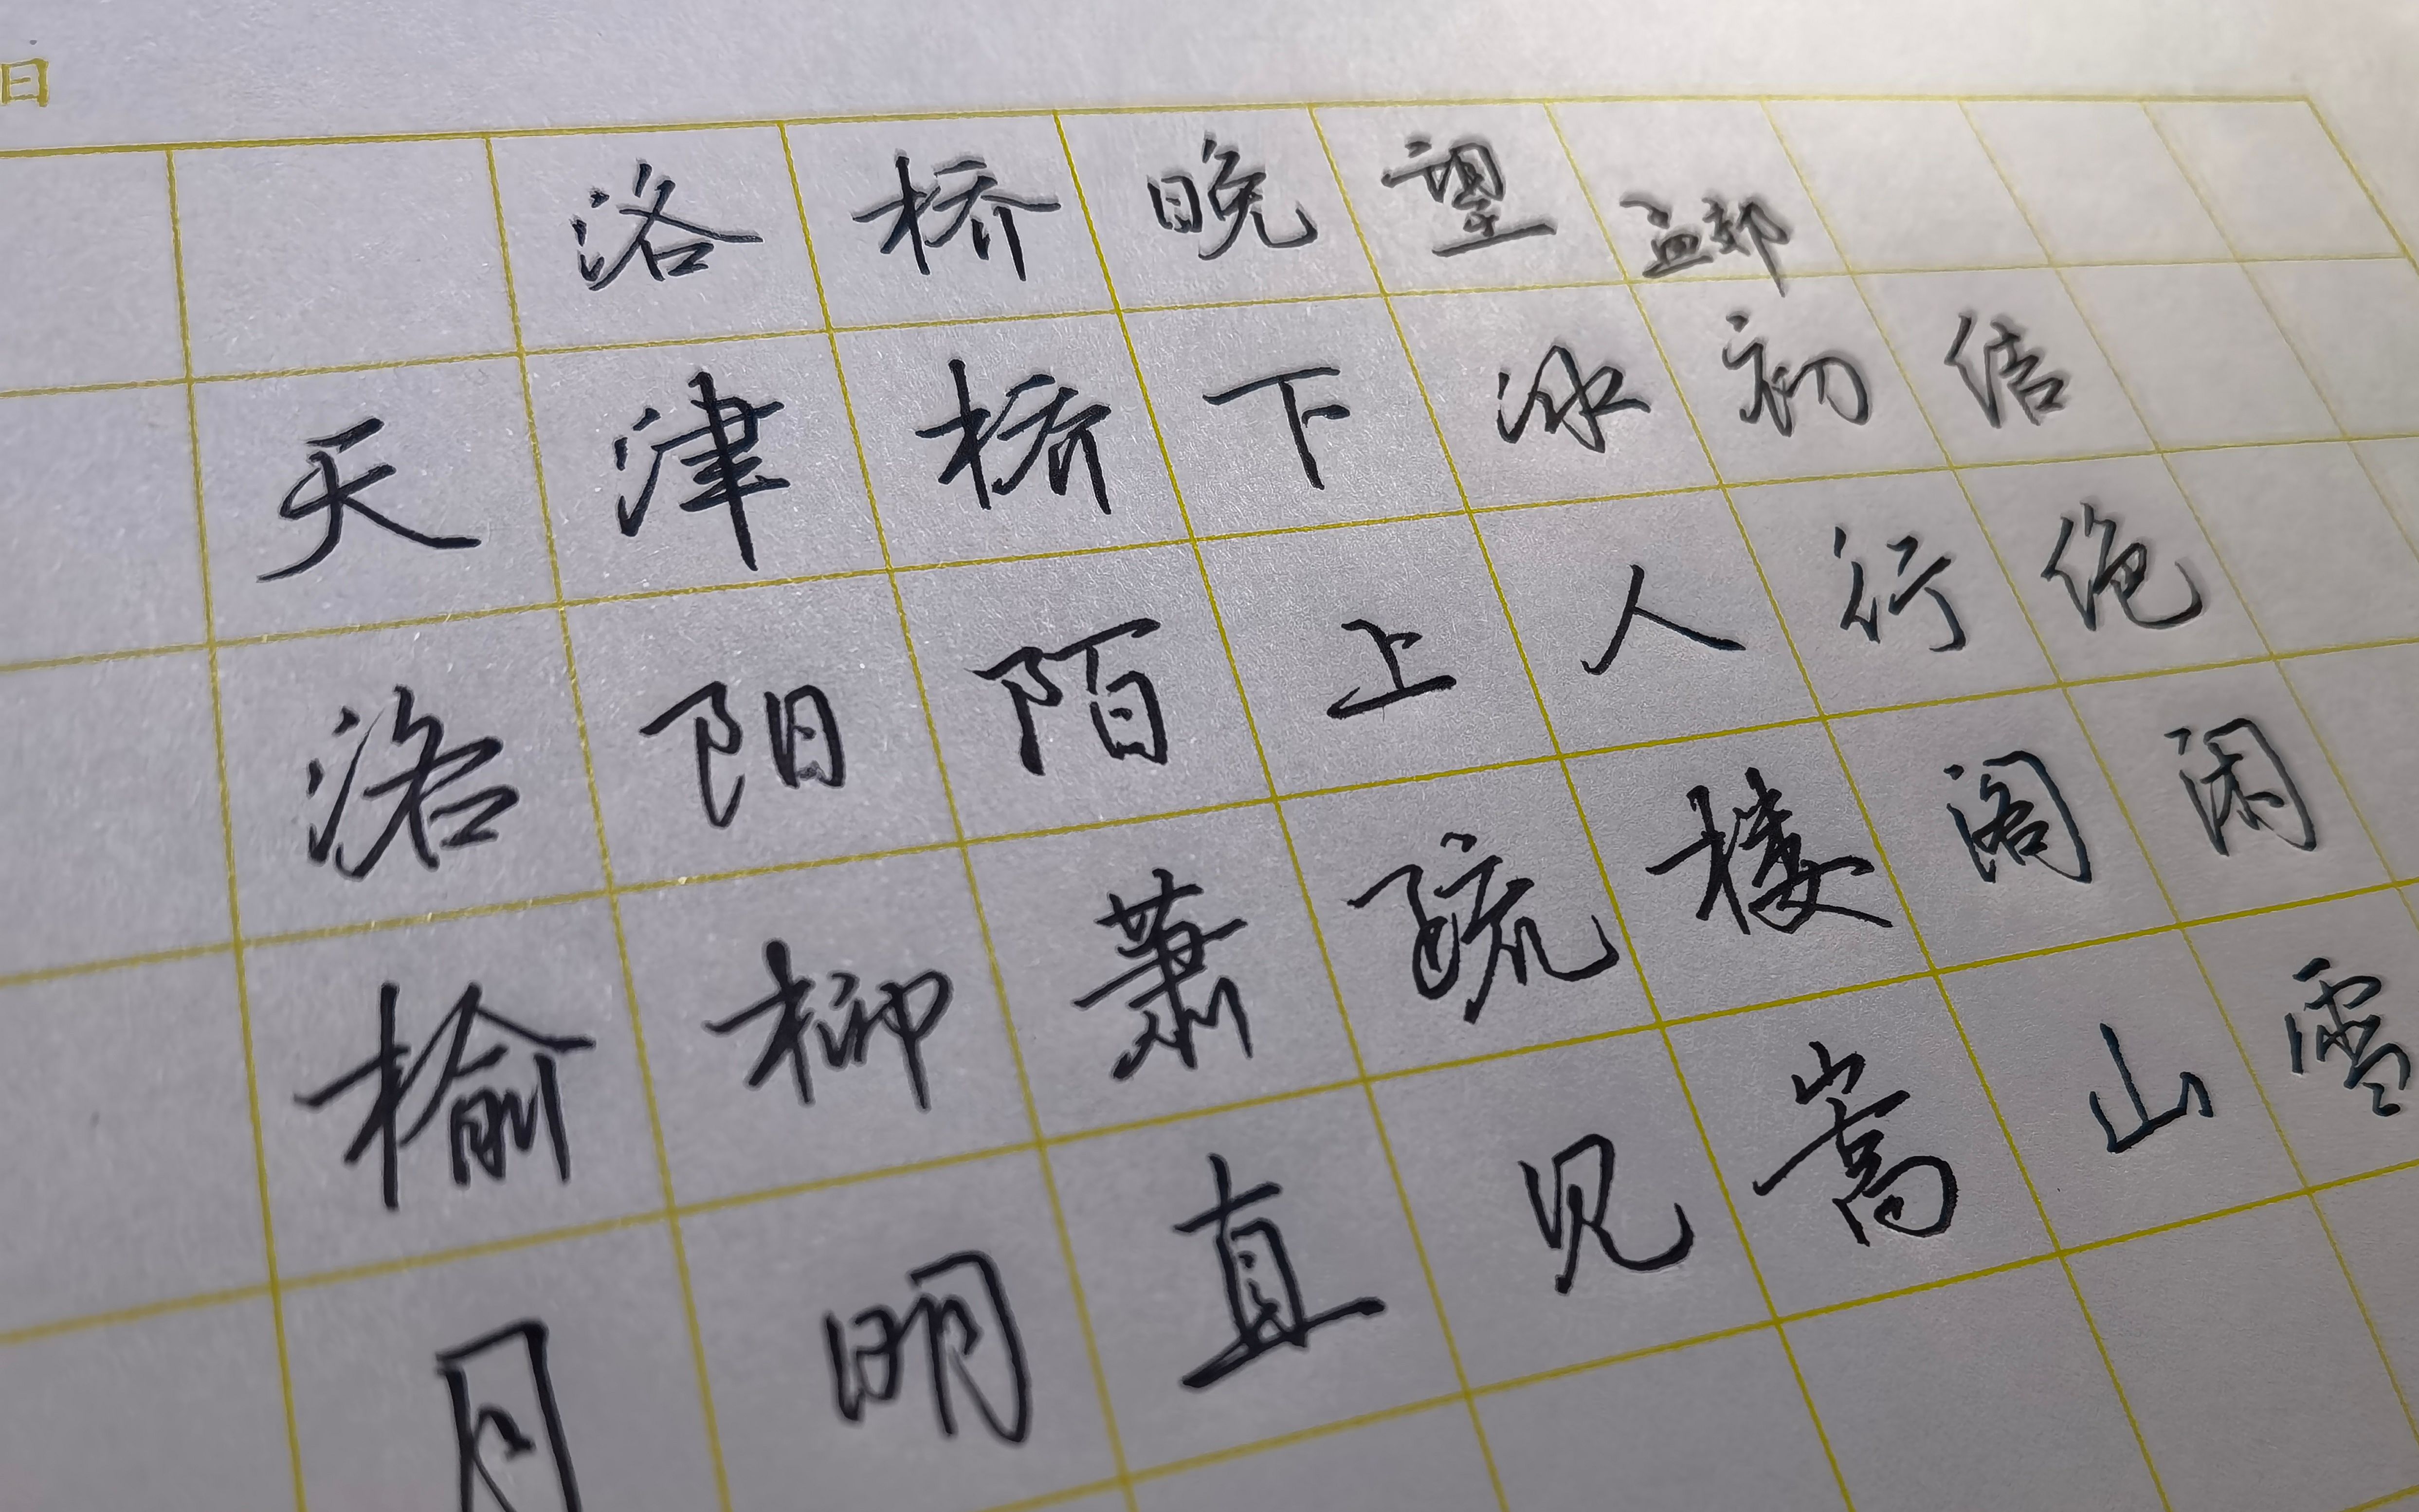 日
洛桥晚望 孟郊
天津桥下冰初结
洛阳陌上人行绝
榆柳萧疏楼阁闲
月明直见嵩山雪